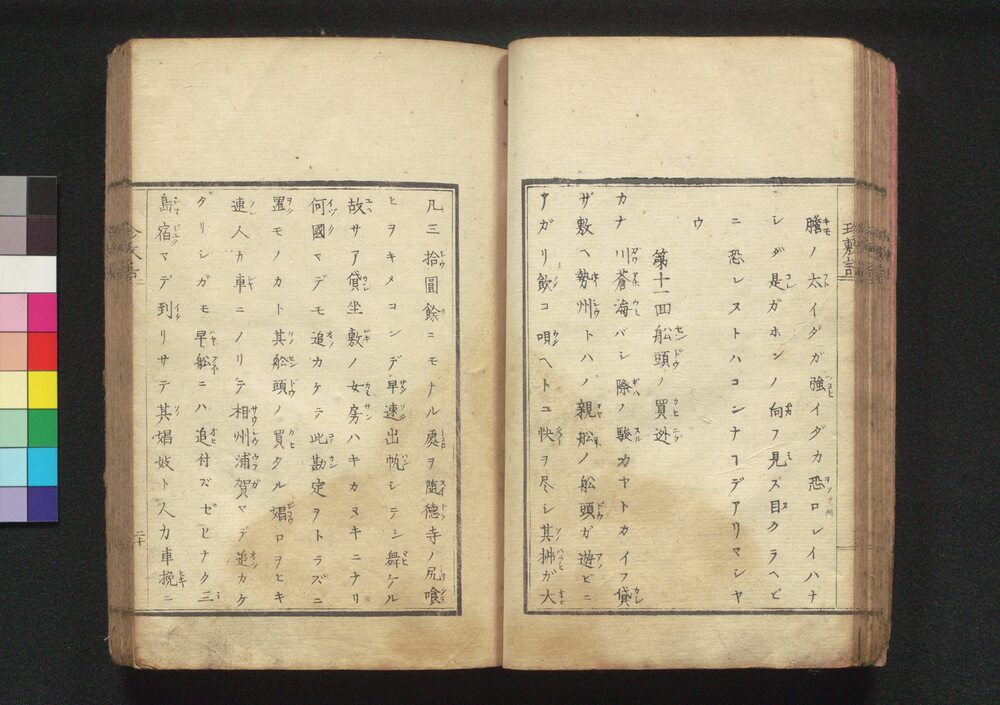 膽ノ太イダガ強イダカ恐ロシイハナ
シダ是ガホンノ向フ見ズ目クラヘビ
ニ恐レヌトハコンナヿデアリマシヤ
ウ
第十一回舩頭ノ買迯
カナ川蒼海バシノ際ノ駿カヤトカイフ貸
ザ敷ヘ勢州トハノ親舩ノ舩頭ガ遊ビニ
アガリ飲コ唄ヘトユ快ヲ尽シ其拂ガ大
凡三拾圓餘ニモナル處ヲ墮徳寺ノ尻喰
ヒヲキメコンデ早速出帆シテシ舞ケル
故サア貸坐敷ノ女房ハキカヌキニナリ
何國マデモ追カケテ此勘定ヲトラズニ
置モノカト其舩頭ノ買タル娼ロヲヒキ
連人力車ニノリテ相州浦賀マデ追カケ
タリシガモ早舩ニハ追付ズゼヒナク三
島宿マデ到リサテ其娼妓ト人力車挽ニ
二十